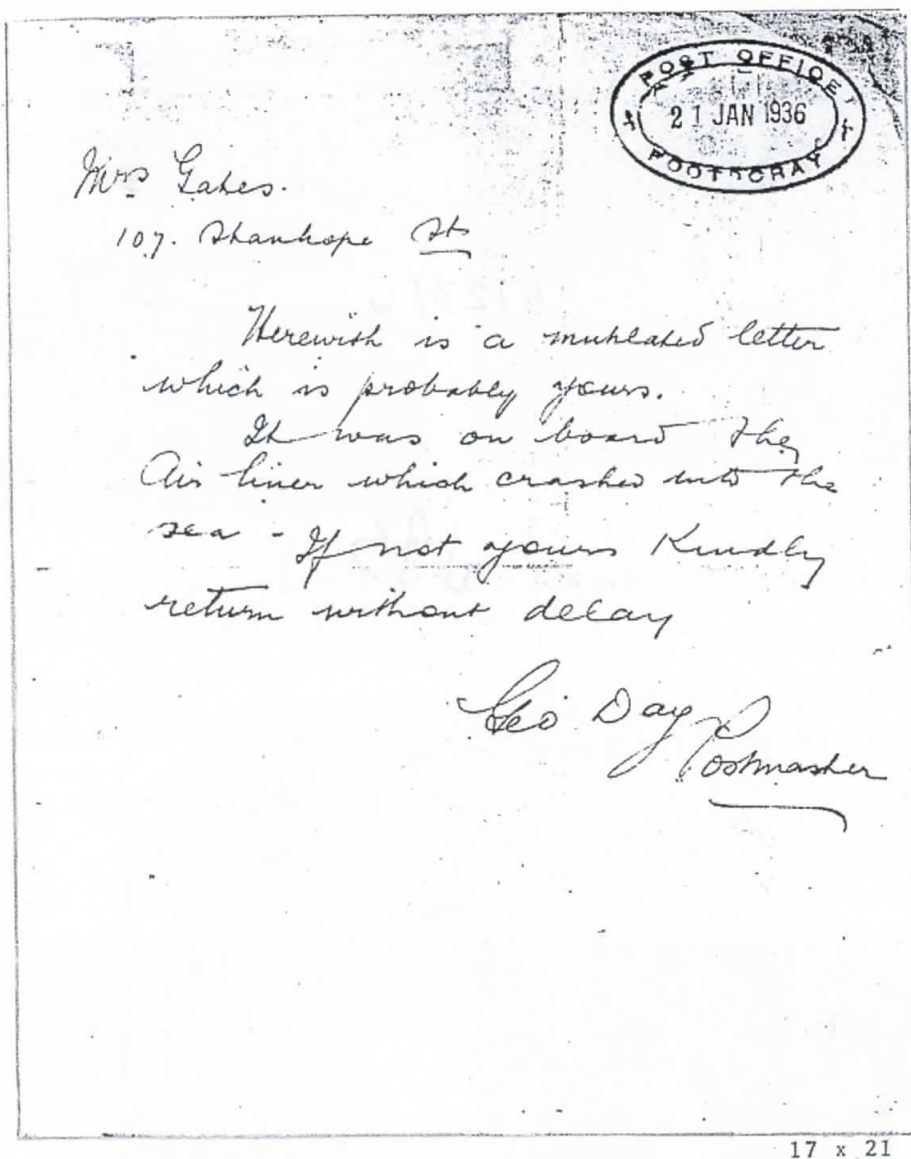 POST OFFICE
21 JAN 1936
FOOTSCRAY
Mrs
107. Stanhope St
Herewith is a mutilated letter
which is probably yours.
It was on board the
Air liner which crashed into the
sea - If not yours Kindly
return without delay
Geo Day
Postmaster
17 x 21